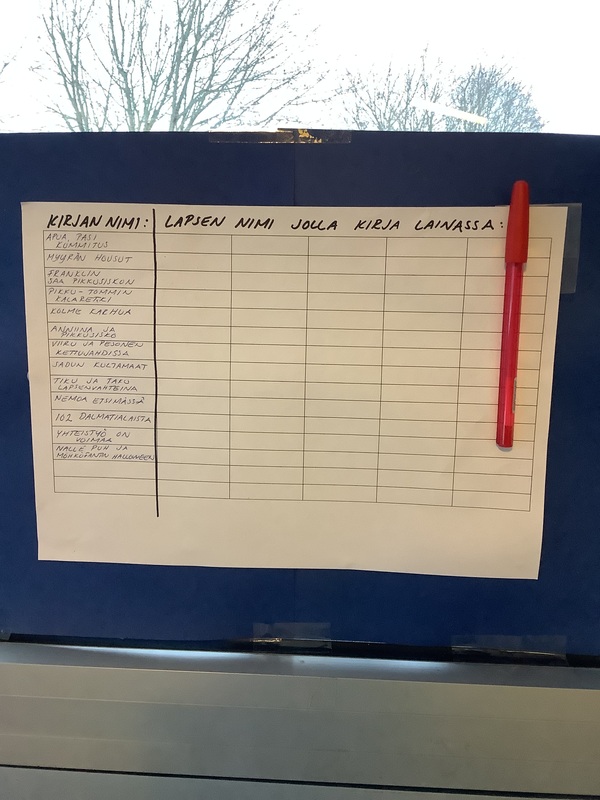 KIRJAN NIMI: LAPSEN NIMI JOLLA KIRJA LAINASSA:
APUA PASI
KUMMITUS
MYYRÄN HOUSUT
FRANKLIN
SAA PIKKUSISKON
PIKKU-TOMMIN
KALARETKI
KOLME KARHUA
ANNIINA JA
PIKKUSISKO
VIIRU JA PESONEN
KETTUJAHDISSA
SADUN KULTAMAAT
TIKU JA TAKU
LAPSENVAHTEINA
NEMOA ETSIMÄSSÄ
102 DALMATIALAISTA
YHTEISTYÖ ON
VOIMAA
NALLE PUH JA
MÖHKÖFANTIN HALLOWEEN